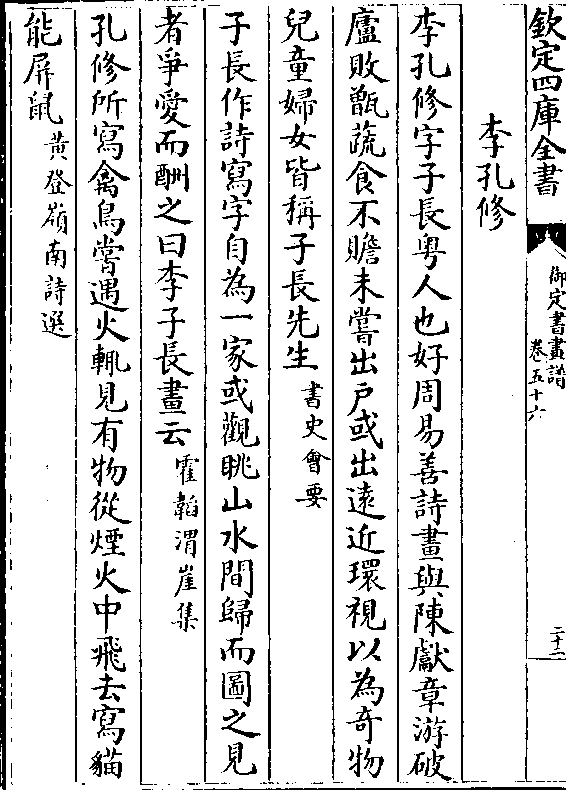 欽定四庫全書
御定書畫譜
卷五十六
二十二
李孔修
李孔修字子長粤人也好周易善詩畫與陳獻章游破
廬敗甑蔬食不贍未嘗出戸或出遠近環視以為奇物
兒童婦女皆稱子長先生書史會要
子長作詩寫字自為一家或觀眺山水間歸而圖之見
者爭愛而酬之曰李子長畫云霍韜渭崖集
孔修所寫禽鳥嘗遇火輒見有物從煙火中飛去寫貓
能屏鼠黄登嶺南詩選